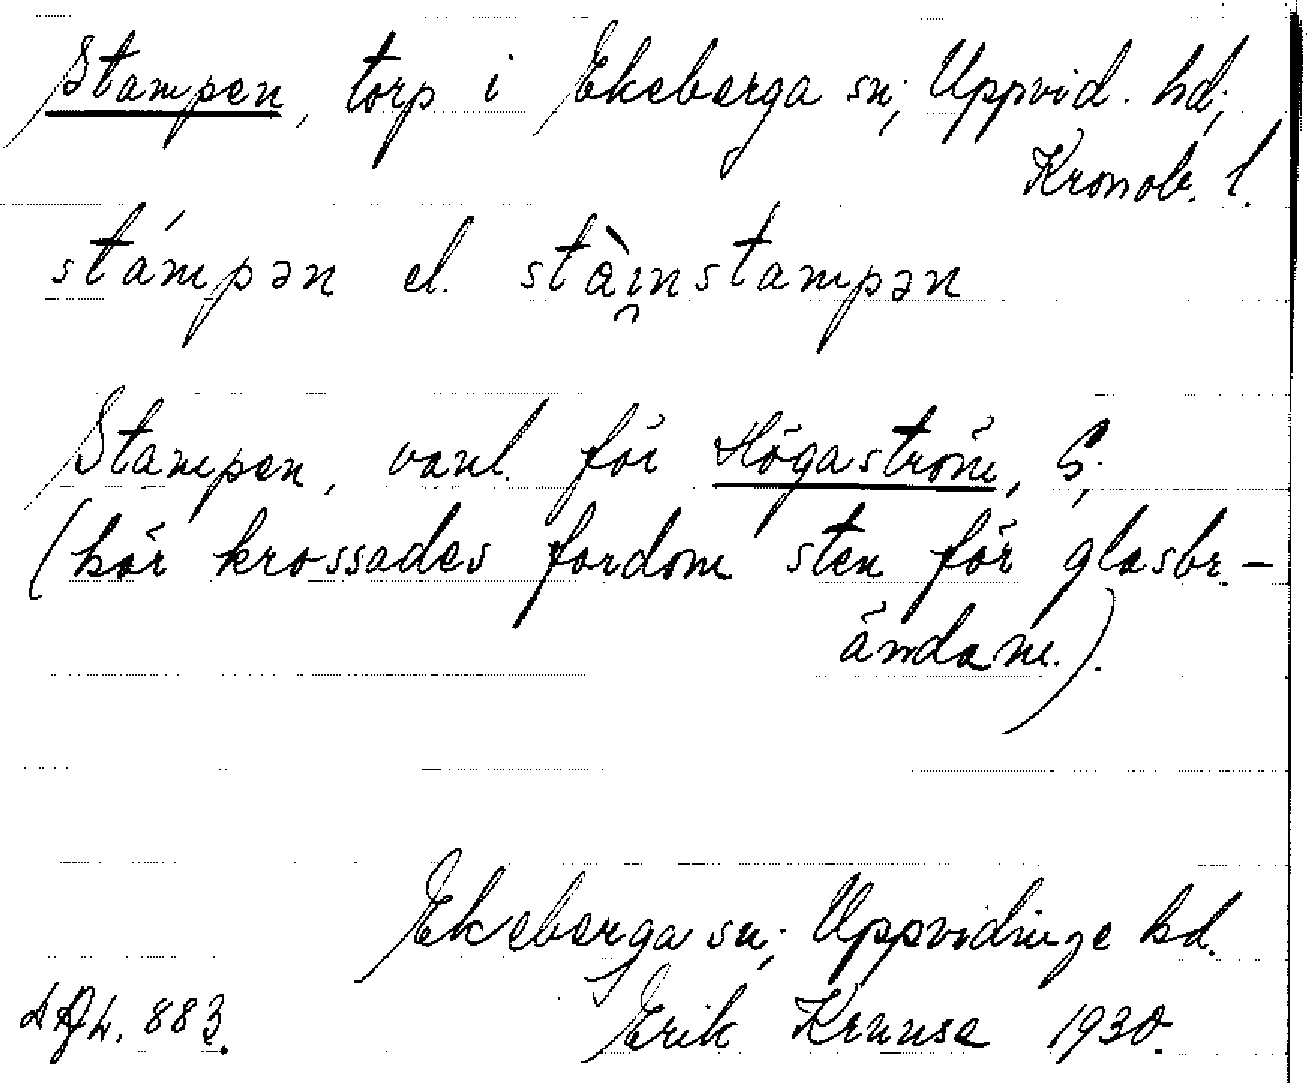 Stampen, torp i Ekeberga sn; Uppvid. hd;
Kronob. l.
stámpən el. stàɪnstampən
Stampen, vanl. för Högaström, S;
(här krossades fordom sten för glasbr.-
ändam.).
Ekeberga sn; Uppvidinge hd.
883. Erik Kruuse 1930.